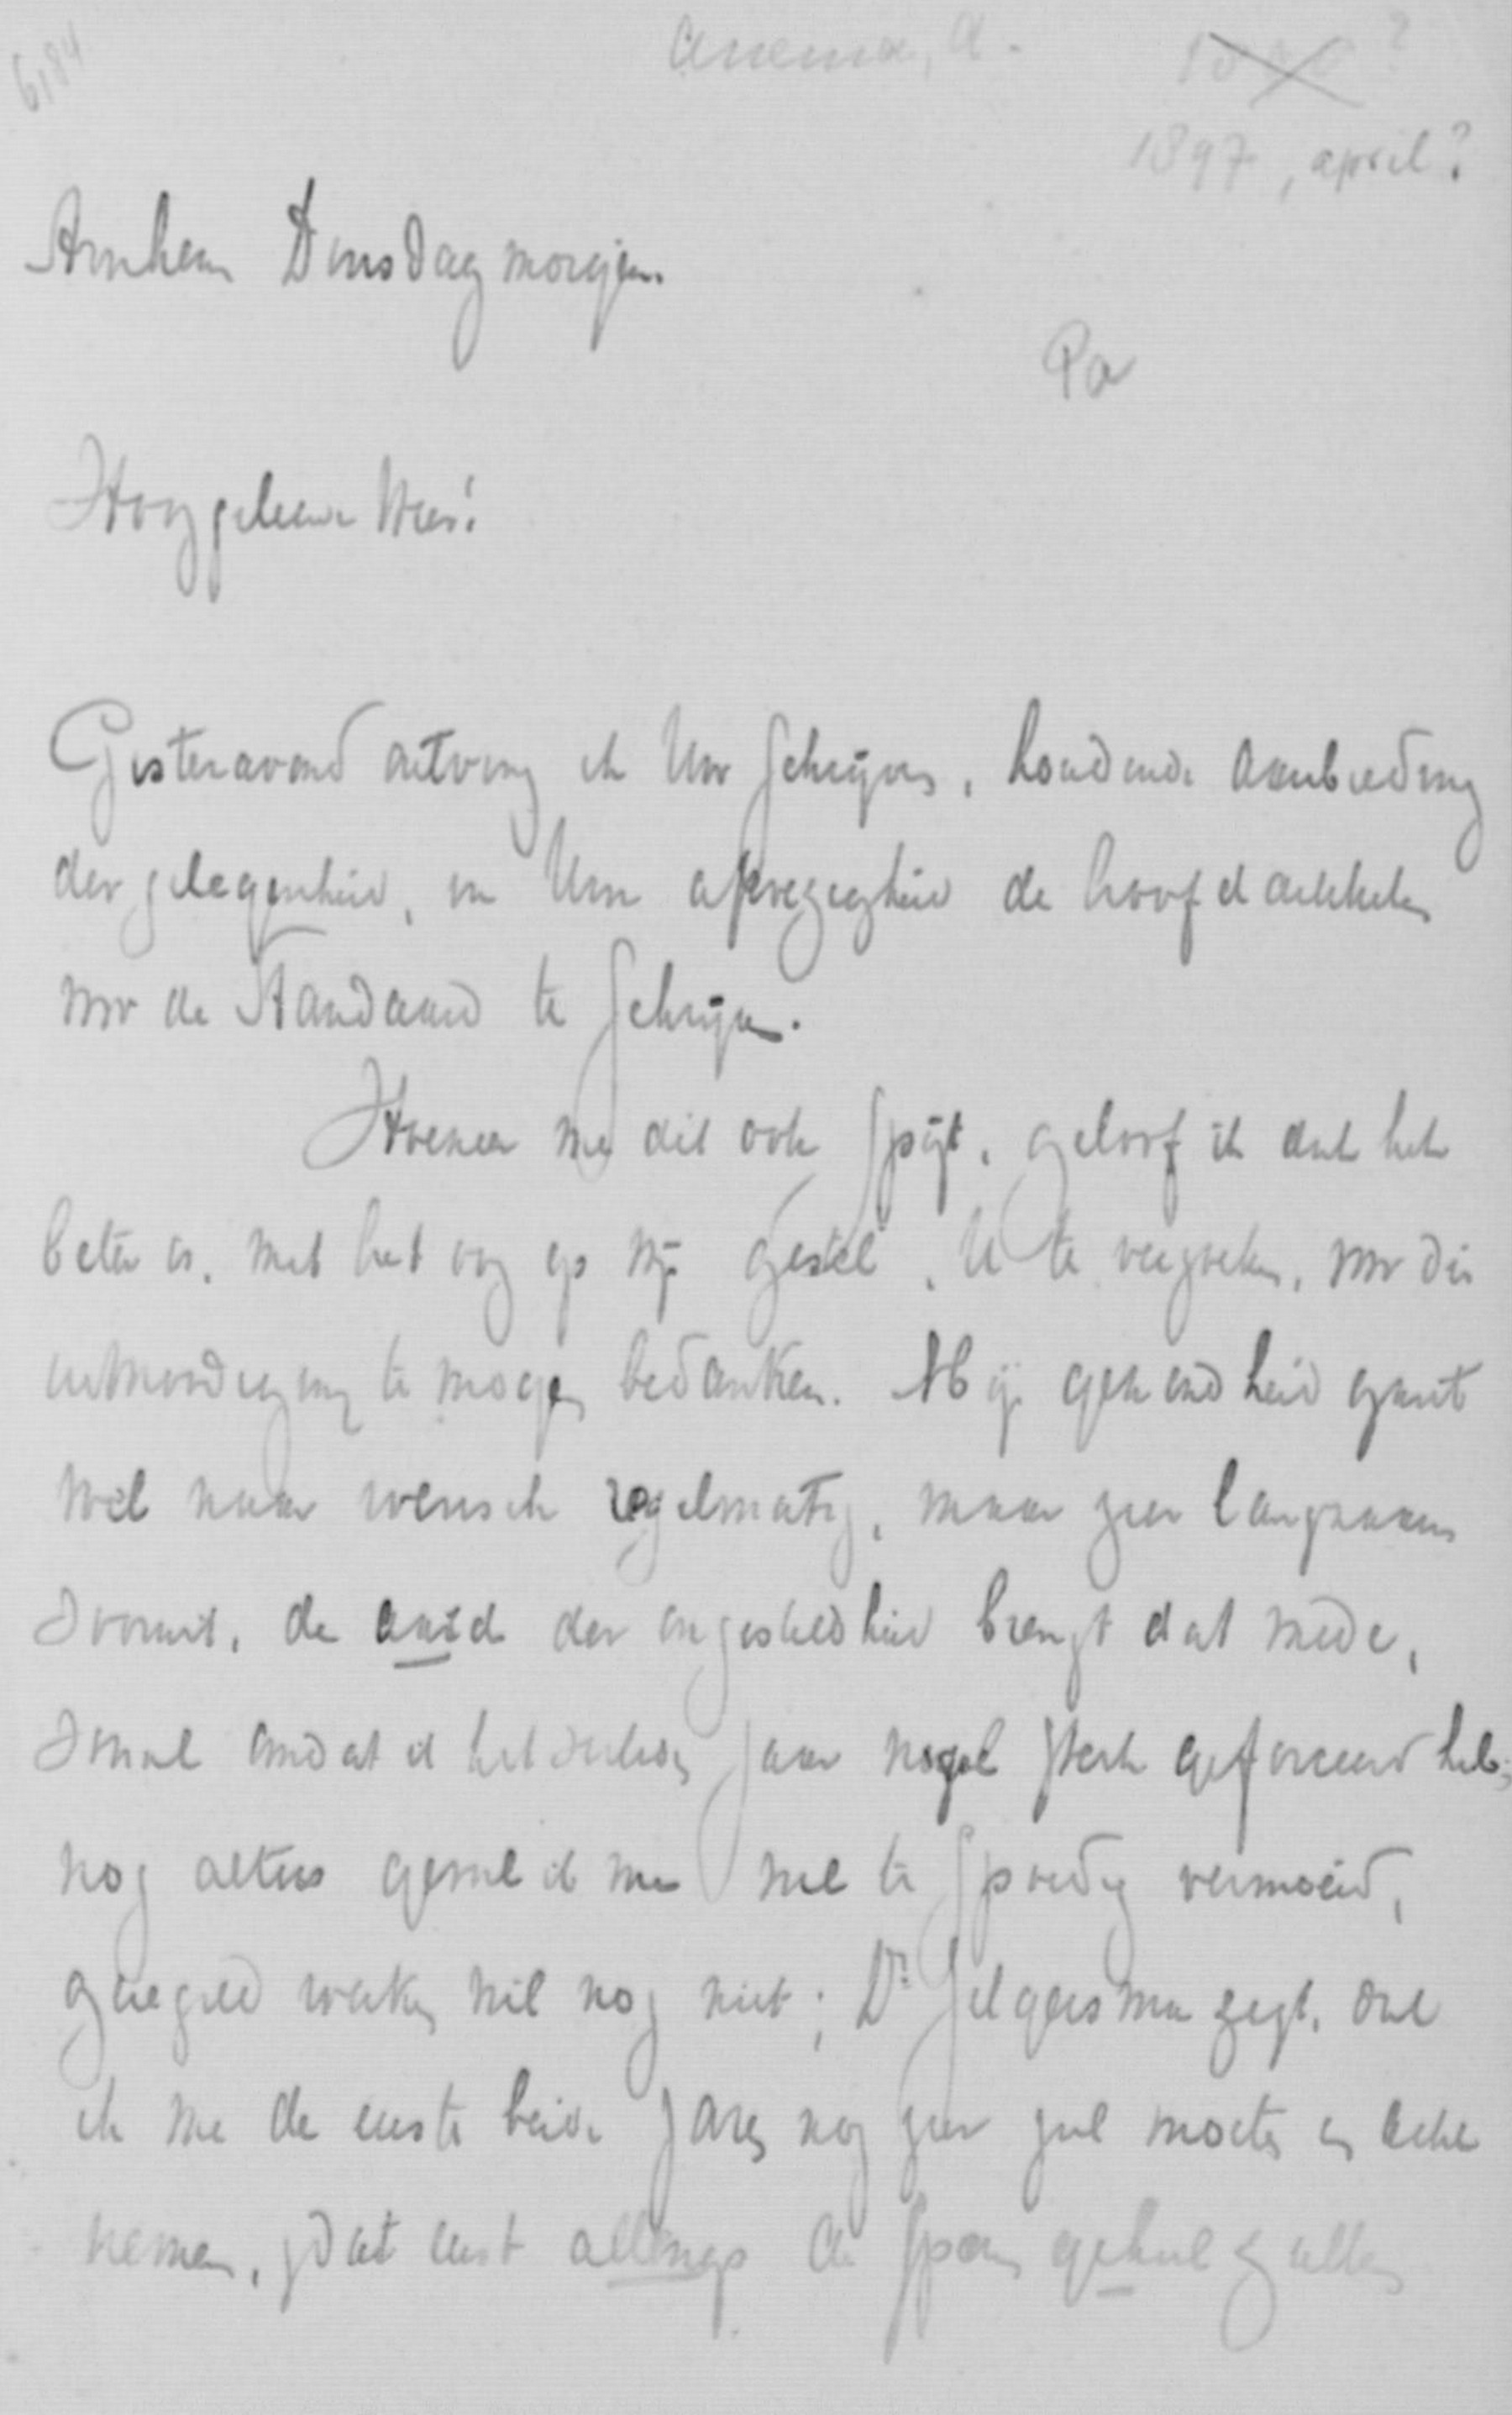 6184
Anema, A.
?
1897, april?
Arnhem Dinsdagmorgen.
Pa
Hooggeleerde Heer!
Gisteravond ontving ik Uw schrijven, houdende aanbieding
der gelegenheid, in Uwe afwezigheid de hoofdartikelen
voor de Standaard te schrijven.
Hoezeer mij dit ook spijt, geloof ik dat het
beter is, met het oog op mijn gestel, U te verzoeken, voor die
uitnoodiging te mogen bedanken. Mijn gezondheid gaat
wel naar wensch regelmatig, maar zeer langzaam
vooruit, de aard der ongesteldheid brengt dat mede,
vooral omdat ik het verleden jaar nogal sterk geforceerd heb;
nog altijd gevoel ik me veel te spoedig vermoeid,
werken wil nog niet; Dr Jelgersma zegt, dat
ik me de eerste beide jaren nog zeer zal moeten in acht
nemen, zoodat eerst allengs de sporen geheel zullen